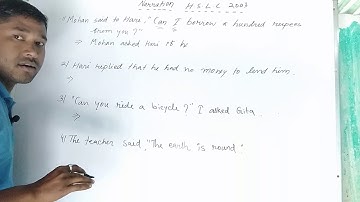 Narration HSLC 2003
1) Mohan said to Hari, "Can I borrow a hundred rupees
from you?"
⇒ Mohan asked Hari if he
2) Hari replied that he had no money to lend him.
⇒
3) "Can you ride a bicycle?" I asked Gita.
⇒
4) The teacher said, "The earth is round."